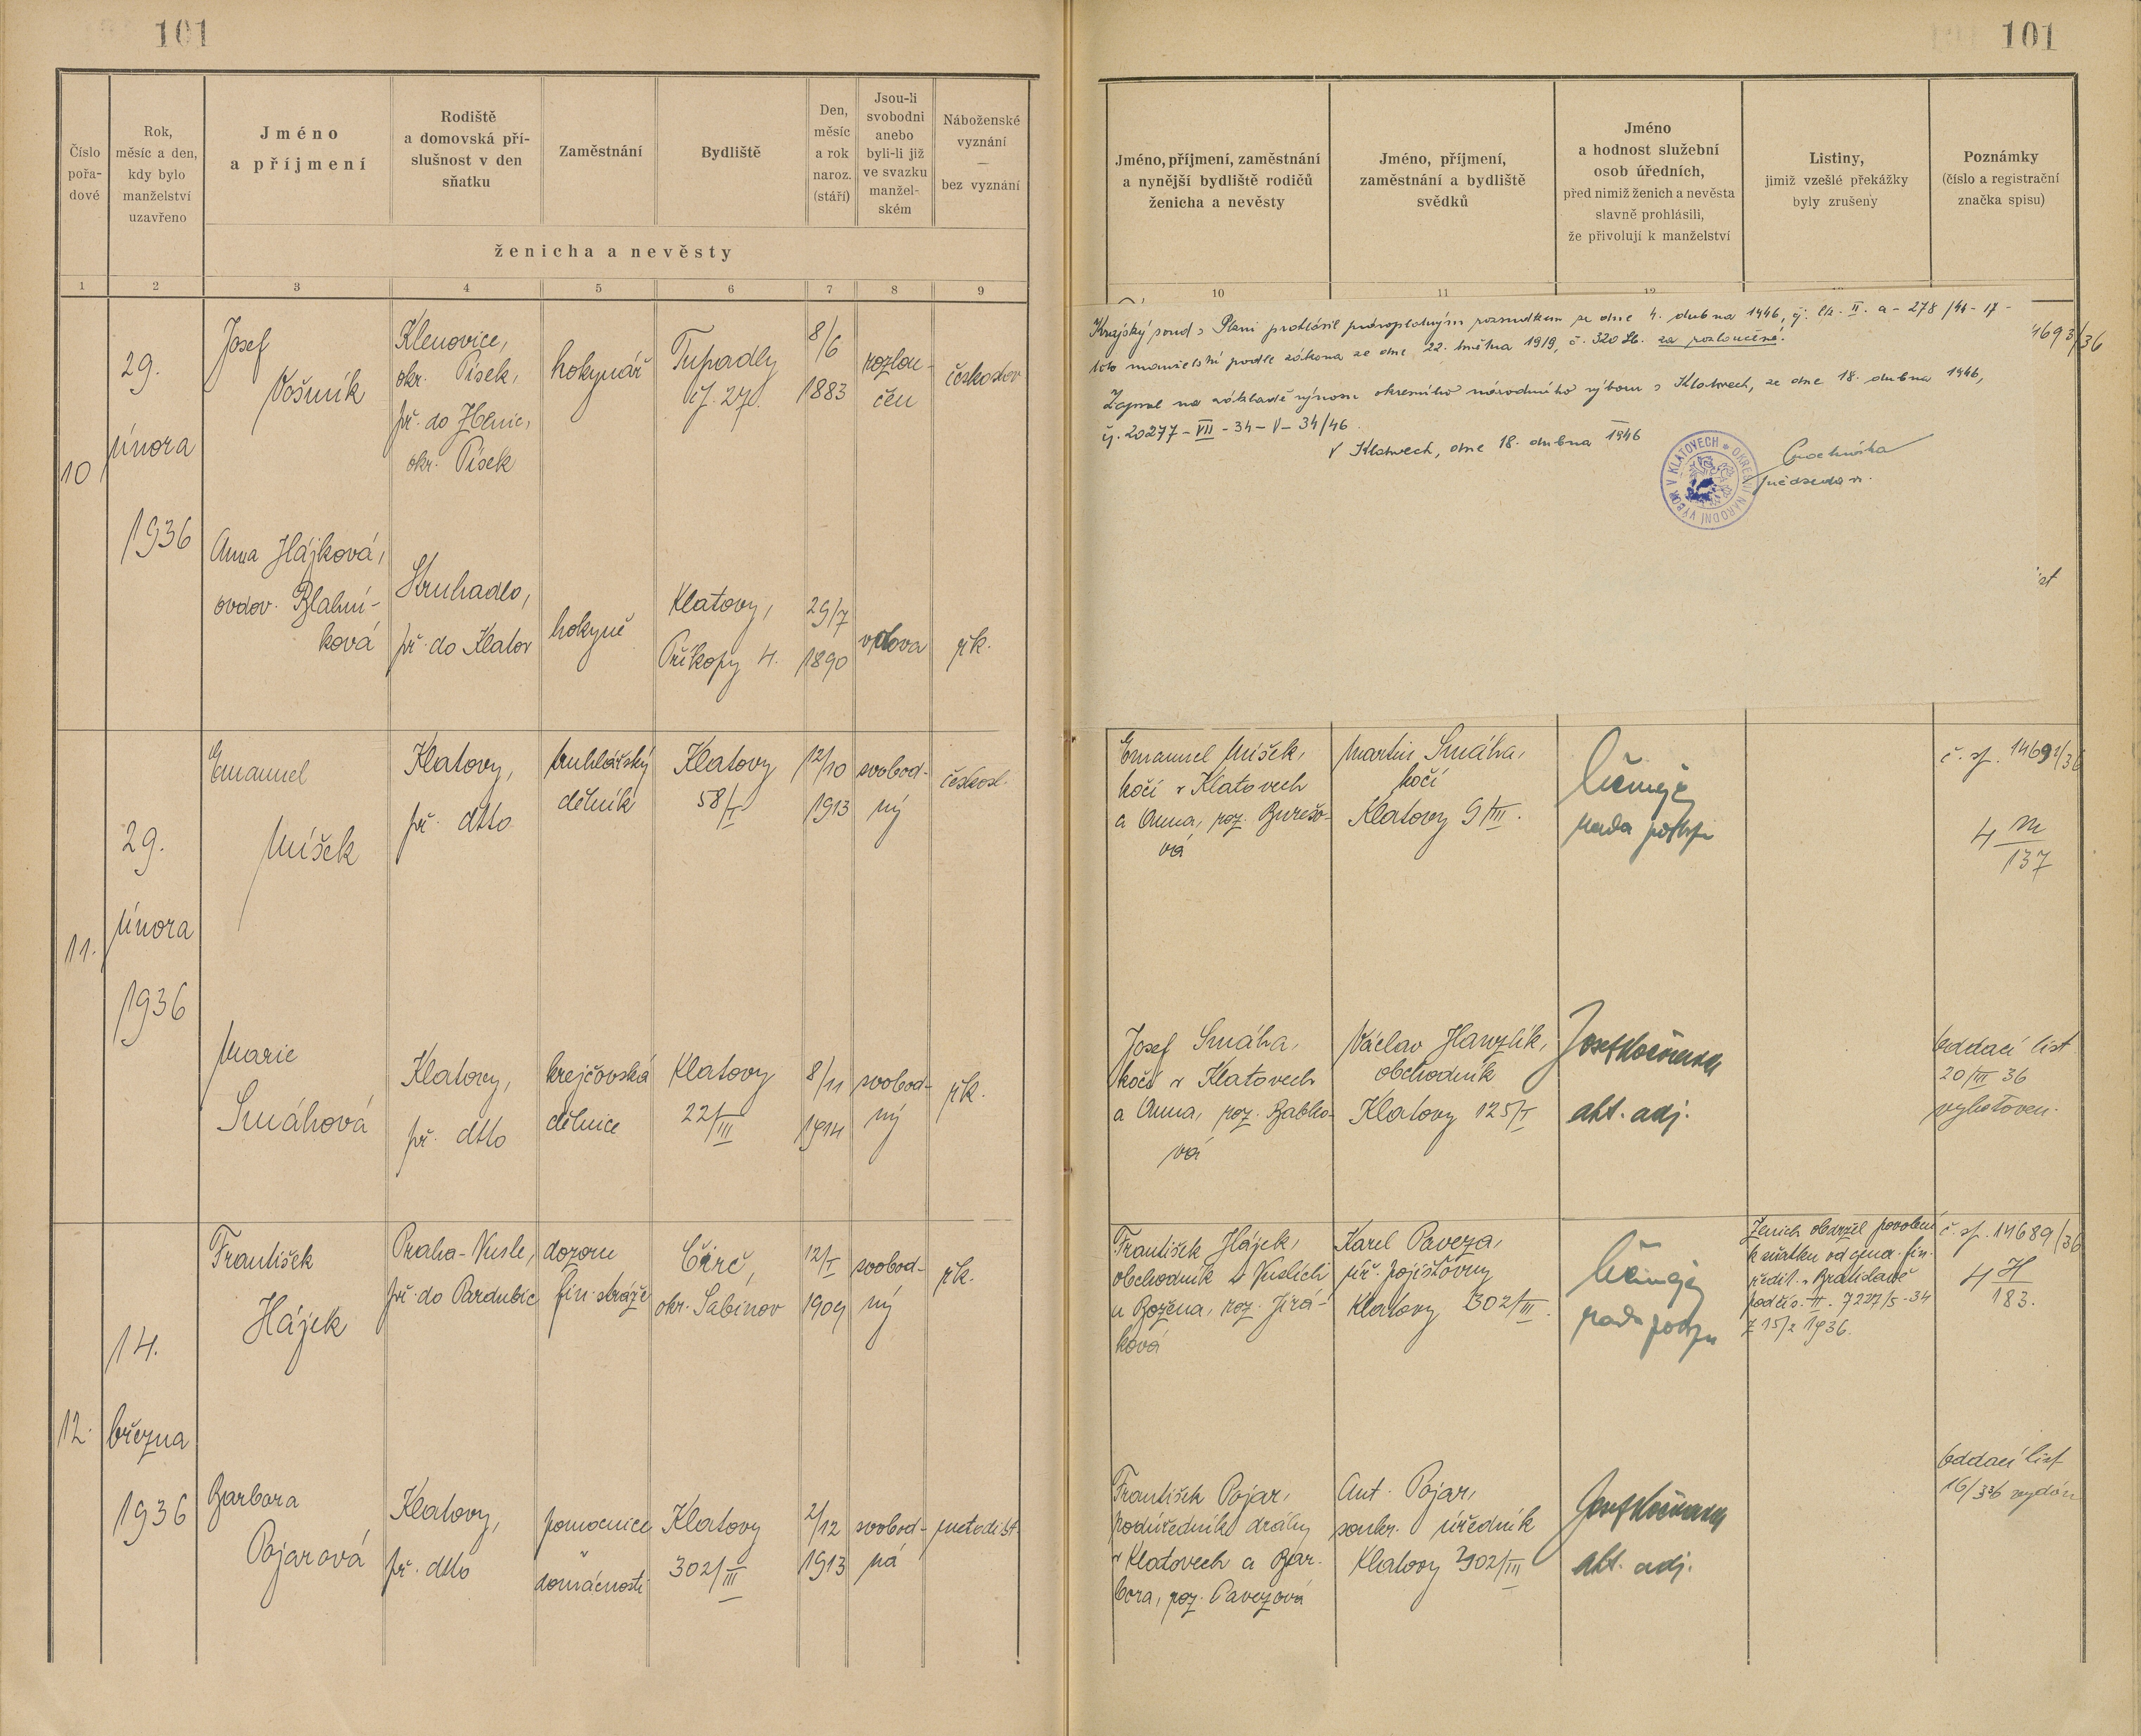 101
101
Číslo
pořa-
dové
Rok,
měsíc a den,
kdy bylo
manželství
uzavřeno
Jméno
a příjmení
Rodiště
a domovská pří-
slušnost v den
sňatku
Zaměstnání
Bydliště
Den,
měsíc
a rok
naroz.
(stáří)
Jsou-li
svobodni
anebo
byli-li již
ve svazku
manžel-
ském
Náboženské
vyznání
—
bez vyznání
ženicha a nevěsty
1 2 3 4 5 6 7 8 9
Jméno, příjmení, zaměstnání
a nynější bydliště rodičů
ženicha a nevěsty
Jméno, příjmení,
zaměstnání a bydliště
svědků
Jméno
a hodnost služební
osob úředních,
před nimiž ženich a nevěsta
slavně prohlásili,
že přivolují k manželství
Listiny,
jimiž vzešlé překážky
byly zrušeny
Poznámky
(číslo a registrační
značka spisu)
10 11 12
10
29.
února
1936
Josef
Vošmik
Klenovice,
okr. Písek,
př. do
okr. Písek
hokynář
Tupadly
čj. 27.
8/6
1883
rozlou-
čen
českoslov
Anna Hájková,
ovdov. Blahní-
ková
Struhadlo,
př. do Klatov
hokyně
Klatovy,
Příkopy 4.
29/7
1890
vdova
řk.
Krajský soud v Plzni prohlásil právoplatným rozsudkem ze dne 4. dubna 1946, čj. Ck. II. a - 278/41 - 17 -
toto manželství podle zákona ze dne 22. května 1919, č. 320 Sb. za rozloučené.
Zapsal na základě výnosu okresního národního výboru v Klatovech, ze dne 18. dubna 1946,
čj. 20277 - VII - 34 - V - 34/46.
V Klatovech, dne 18. dubna 1946
předseda
OKRESNÍ NÁRODNÍ VÝBOR V KLATOVECH
4693/36
ist
11.
29.
února
1936
Emanuel
Míšek
Klatovy,
př. dtto
truhlářský
dělník
Klatovy
58/I
12/10
1913
svobod-
ný
českosl.
Marie
Smáhová
Klatovy,
př. dtto
krejčovská
dělnice
Klatovy
22/III
8/11
1914
svobod-
ný
řk.
Emanuel Míšek,
kočí v Klatovech
a Anna, roz. Burešo-
vá
Martin Smáha,
kočí
Klatovy 9/III.
rada
č. sp. 14691/36
4 M
137
Josef Smáha,
kočí v Klatovech
a Anna, roz. Babko-
vá
Václav Hanzlík,
obchodník
Klatovy 125/I
Josef
akt. adj.
Oddací list
20/III 36
vyhotoven.
12.
14.
března
1936
František
Hájek
Praha-Nusle,
př. do Pardubic
dozorce
fin. stráže
Čirč,
okr. Sabinov
12/I
1909
svobod-
ný
řk.
Barbora
Pojarová
Klatovy,
př. dtto
pomocnice
v
domácnosti
Klatovy
302/III
2/12
1913
svobod-
ná
metodist.
František Hájek,
obchodník v Nuslích
a Božena, roz. Jirá-
ková
Karel Paveza,
úř. pojišťovny
Klatovy 302/III.
rada
Ženich obdržel povolení
k sňatku od gener. fin.
ředit. v Bratislavě
pod čís. II. 7227/5-34
z 15/2 1936.
č. sp. 14689/36
4 H
183.
František Pojar,
podúředník dráhy
v Klatovech a Bar-
bora, roz. Pavezová
Ant. Pojar,
soukr. úředník
Klatovy 302/III
Josef
akt. adj.
Oddací list
16/3 36 vydán